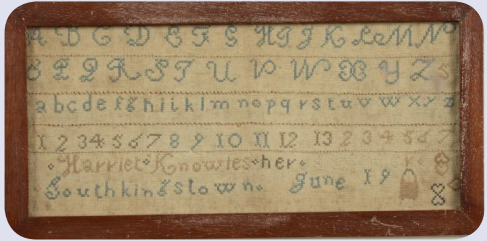 A B C D E F G H I J K L M N
O P Q R S T U V W X Y Z
a b c d e f g h i j k l m n o p q r s t u v w x y z
1 2 3 4 5 6 7 8 9 10 11 12 13 2 3 4 5 6 7
Harriet Knowles her
Southkingstown. June 19
8